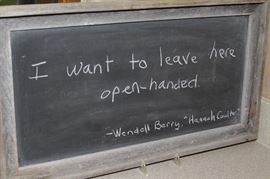 I want to leave here
open-handed.
-Wendell Berry, "Hannah Coulter"